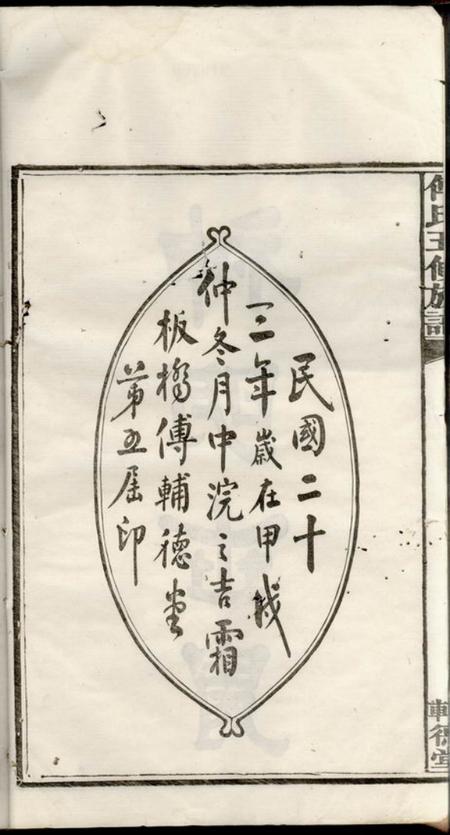 傅氏五修族譜
輔德堂
民國二十
三年歲在甲戌
仲冬月中浣之吉霜
板橋傅輔德堂
第五屆印